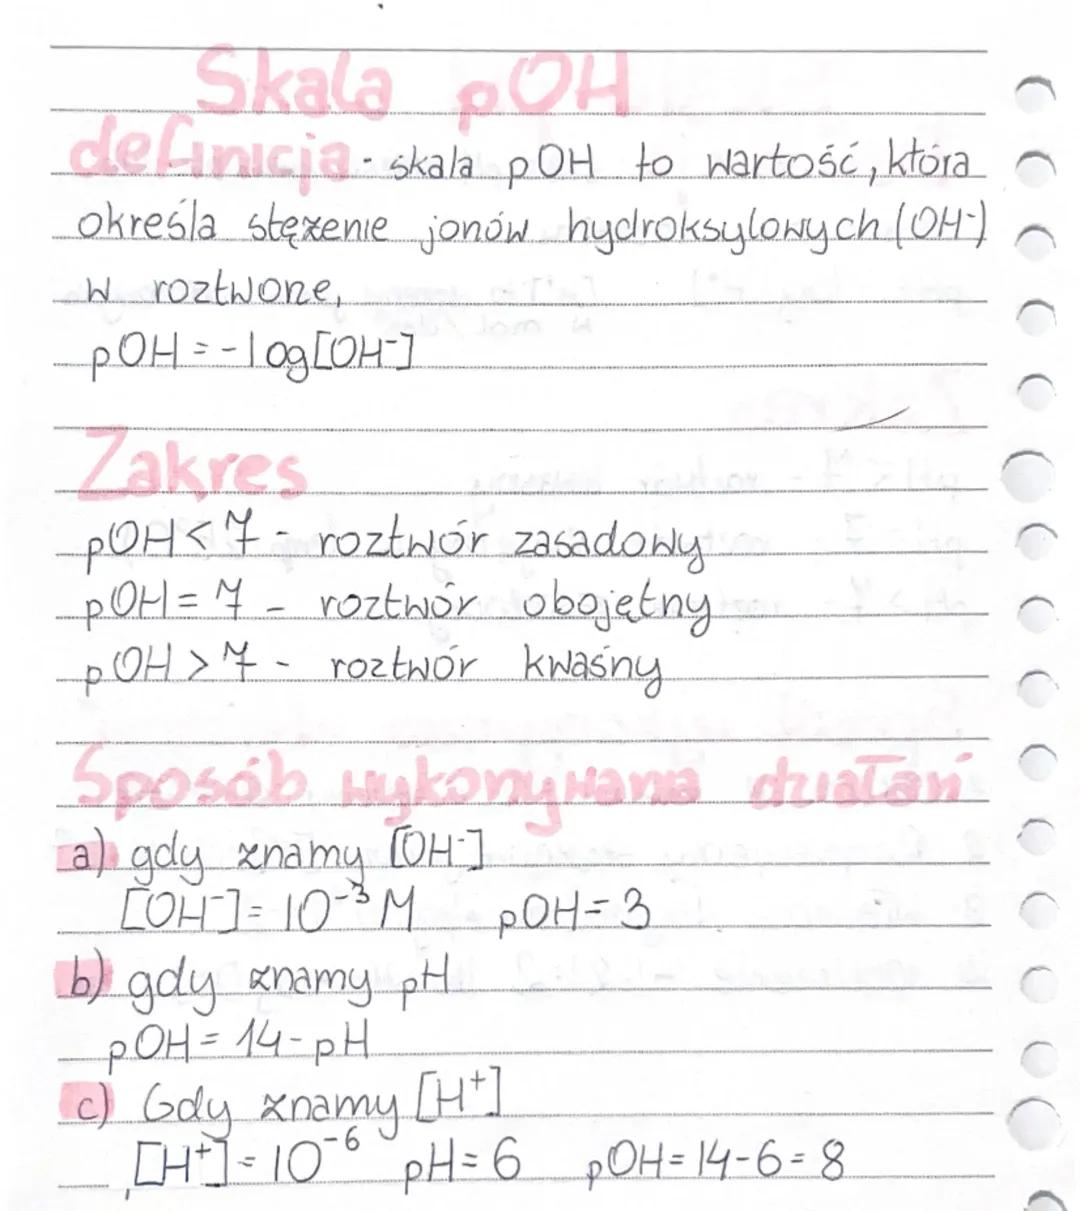 Skala pOH
definicja - skala pOH to wartość, która
określa stężenie jonów hydroksylowych (OH⁻)
w roztworze,
pOH = -log[OH⁻]
Zakres
pOH < 7 - roztwór zasadowy
pOH = 7 - roztwór obojętny
pOH > 7 - roztwór kwaśny
Sposób wykonywania działań
a) gdy znamy [OH⁻]
[OH⁻] = 10⁻³ M pOH = 3
b) gdy znamy pH
pOH = 14 - pH
c) Gdy znamy [H⁺]
[H⁺] = 10⁻⁶ pH = 6 pOH = 14 - 6 = 8